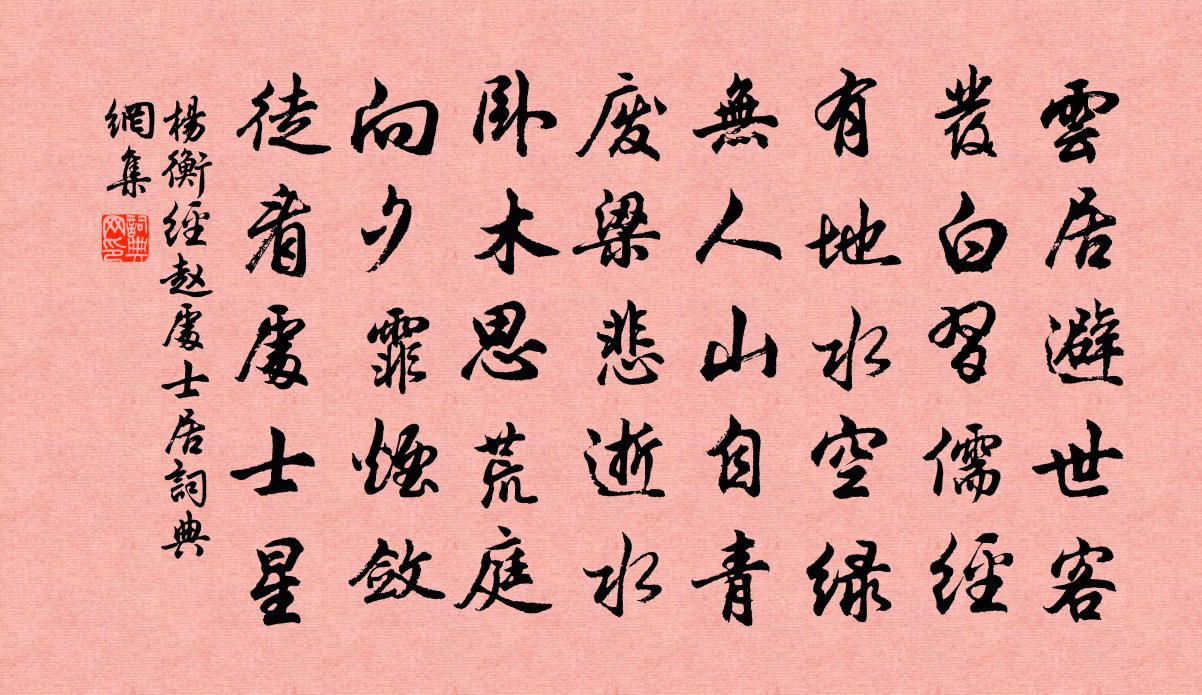 雲居避世客
發白習儒經
有地水空綠
無人山自青
廢梁悲逝水
臥木思荒庭
向夕霏煙斂
徒看處士星
楊衡經赵處士居詞典
網集
詞典
网印